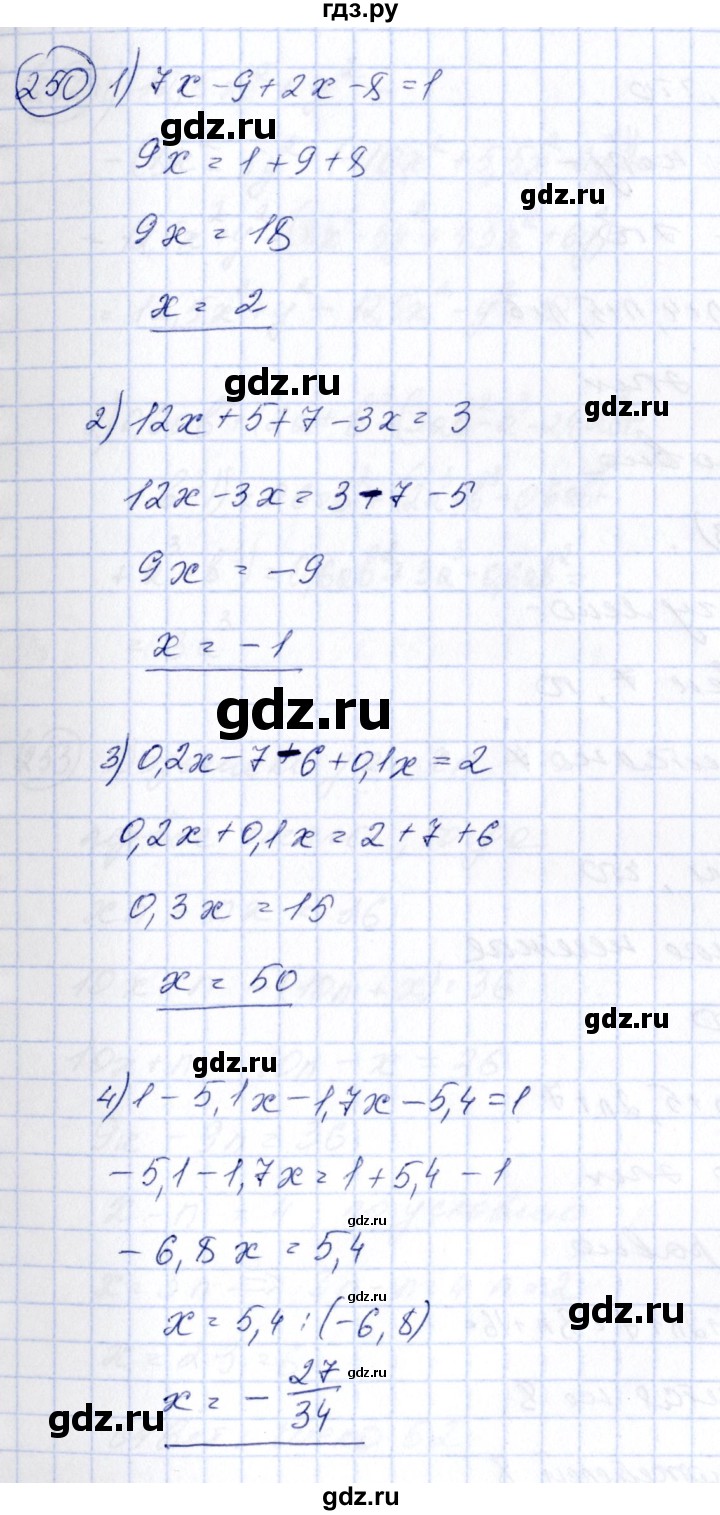 гдз.ру
250 1) 7x - 9 + 2x - 8 = 1
gdz.ru
9x = 1 + 9 + 8
gdz.ru
9x = 18
x = 2
gdz.ru
gdz.ru
2) 12x + 5 + 7 - 3x = 3
12x - 3x = 3 - 7 - 5
9x = -9
x = -1
gdz.ru
3) 0,2x - 7 - 6 + 0,1x = 2
0,2x + 0,1x = 2 + 7 + 6
0,3x = 15
x = 50
gdz.ru
gdz.ru
4) 1 - 5,1x - 1,7x - 5,4 = 1
-5,1 - 1,7x = 1 + 5,4 - 1
gdz.ru
-6,8x = 5,4
gdz.ru
x = 5,4 : (-6,8)
gdz.ru
x = - 27/34
gdz.ru
gdz.ru
gdz.ru